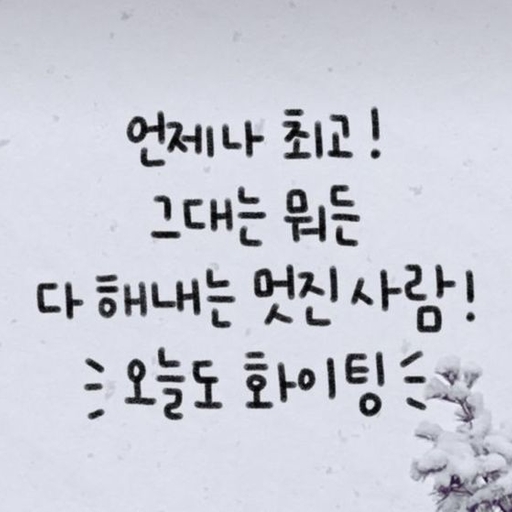 언제나 최고!
그대는 뭐든
다 해내는 멋진 사람!
오늘도 화이팅